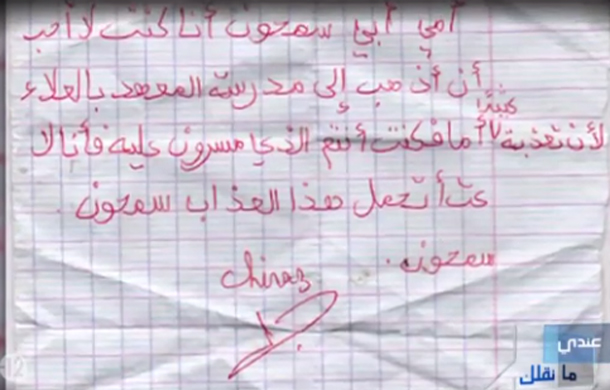 أمي أبي سمحون أنا كنت لا أحب
أن أذهب إلى مدرسة المعهد بالعلاء
كثيرا
لأن تعذبة أما فكنت أنتم الذي مسرون عليه فأنا لا
عت أتحمل هذا العذاب سمحون.
سمحون.
chiraz
عندي
ما نقلك
12